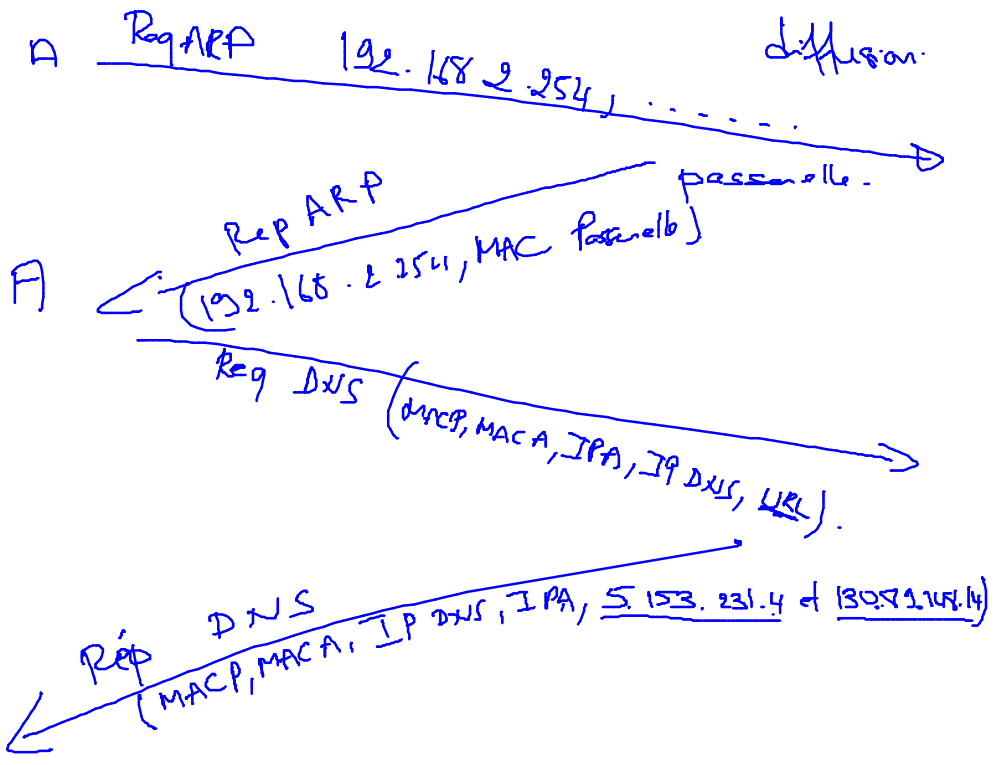 A Req ARP 192.168.2.254, ....... diffusion.
passerelle.
Rep ARP
A (192.168.2 254, MAC Passerelle)
Req DNS (MACP, MAC A, IPA, IP DNS, URL).
Rép DNS
(MACP, MAC A, IP DNS, IPA, 5.153.231.4 et 130.89.148.14)